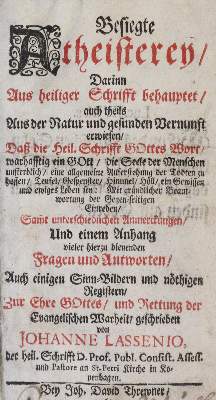 Besiegte
Atheisterey/
Darinn
Aus heiliger Schrifft behauptet/
auch theils
Aus der Natur und gesunden Vernunft
erwiesen/
Daß die Heil. Schrifft GOttes Wort/
warhafftig ein GOtt/ die Seele der Menschen
unsterblich/ eine allgemeine Aufferstehung der Todten zu
hoffen/ Teufel/ Gespenster/ Himmel/ Höll/ ein Gewissen
und ewiges Leben sind: Mit gründlicher Beant-
wortung der Gegen-seitigen
Einreden/
Samt unterschiedlichen Anmerckungen/
Und einem Anhang
vieler hierzu dienenden
Fragen und Antworten/
Auch einigen Sinn-Bildern und nöthigen
Registern/
Zur Ehre GOttes/ und Rettung der
Evangelischen Warheit/ geschrieben
von
JOHANNE LASSENIO,
der heil. Schrifft D. Prof. Publ. Consist. Assess.
und Pastore an St. Petri Kirche in Ko-
penhagen.
Bey Joh. David